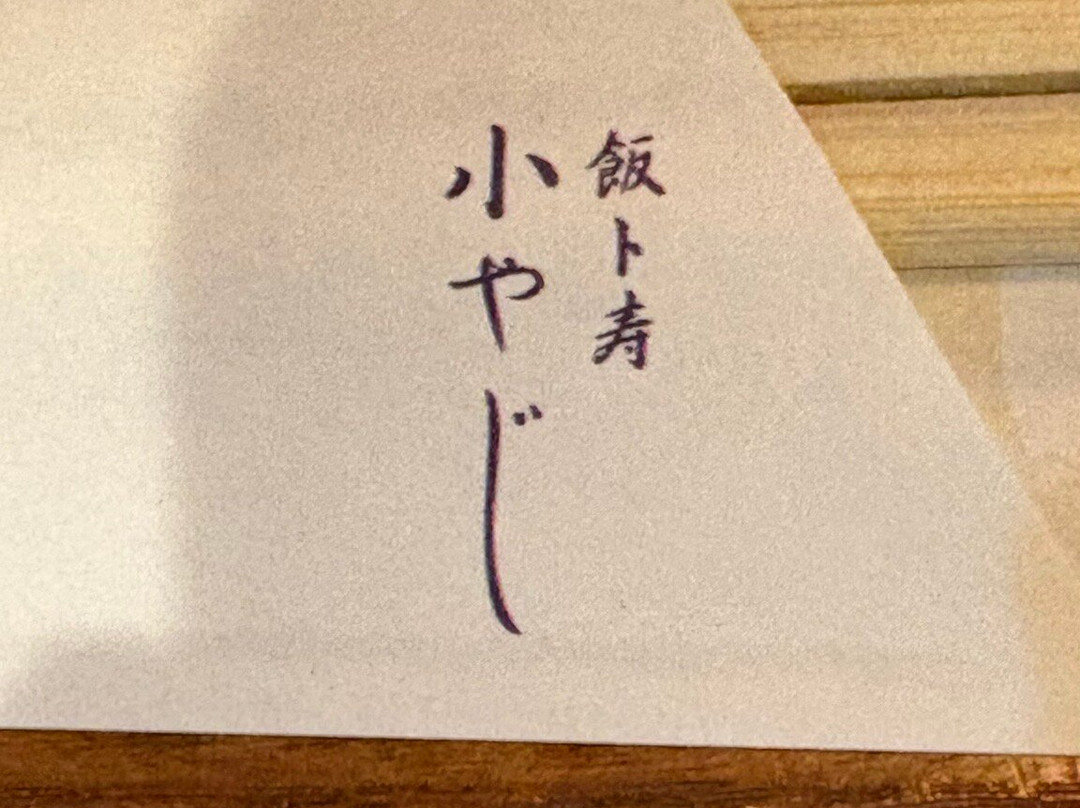 飯ト寿
小やじ